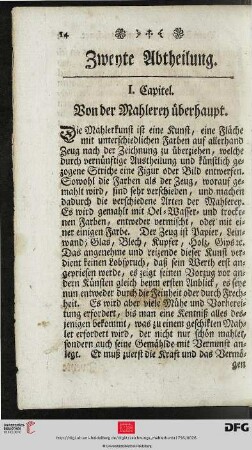 14
Zweyte Abtheilung.
I. Capitel.
Von der Mahlerey überhaupt.
Die Mahlerkunst ist eine Kunst, eine Fläche
mit unterschiedlichen Farben auf allerhand
Zeug nach der Zeichnung zu überziehen, welche
durch vernünftige Austheilung und künstlich ge-
zogene Striche eine Figur oder Bild entwerfen.
Sowohl die Farben als der Zeug, worauf ge-
mahlt wird, sind sehr verschieden, und machen
dadurch die verschiedene Arten der Mahlerey.
Es wird gemahlt mit Oel- Wasser- und trocke-
nen Farben, entweder vermischt, oder mit ei-
ner einigen Farbe. Der Zeug ist Papier, Lein-
wand, Glas, Blech, Kupfer, Holz, Gips ꝛc.
Das angenehme und reizende dieser Kunst ver-
dienet keinen Lobspruch, daß sein Werth erst an-
gepriesen werde, es zeiget seinen Vorzug vor an-
dern Künsten gleich beym ersten Anblick, es seye
nun entweder durch die Feinheit oder durch Frech-
heit. Es wird aber viele Mühe und Vorberei-
tung erfordert, bis man eine Kentniß alles des-
jenigen bekommt, was zu einem geschikten Mah-
ler erfordert wird, der nicht nur schön mahlet,
sondern auch seine Gemählde mit Vernunft an-
legt. Er muß zuerst die Kraft und das Vermö-
gen
UNIVERSITÄTS-
BIBLIOTHEK
HEIDELBERG
DFG